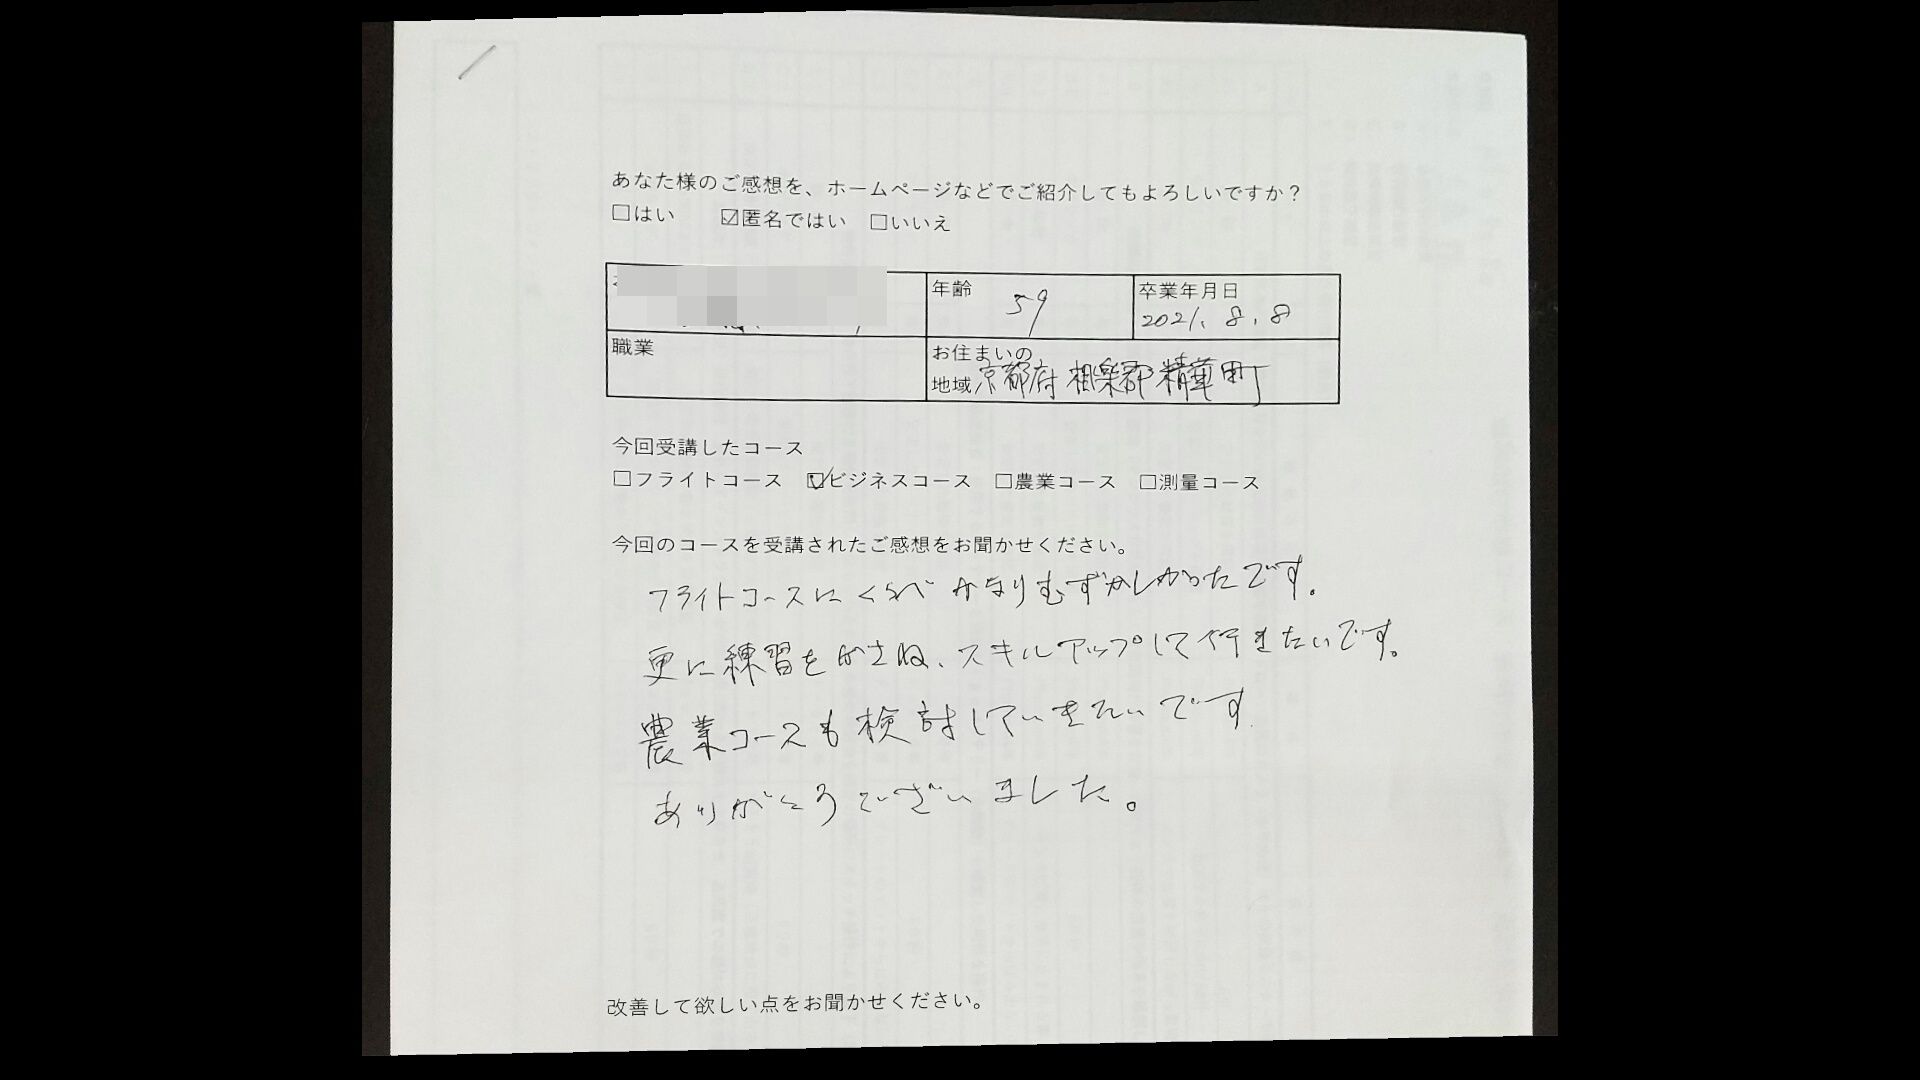 あなた様のご感想を、ホームページなどでご紹介してもよろしいですか？
□はい ☑匿名ではい □いいえ
年齢 59
卒業年月日 2021. 8. 8
職業
お住まいの
地域 京都府 相楽郡 精華町
今回受講したコース
□フライトコース ☑ビジネスコース □農業コース □測量コース
今回のコースを受講されたご感想をお聞かせください。
フライトコースにくらべかなりむずかしかったです。
更に練習をかさね、スキルアップして行きたいです。
農業コースも検討していきたいです.
ありがとうございました。
改善して欲しい点をお聞かせください。